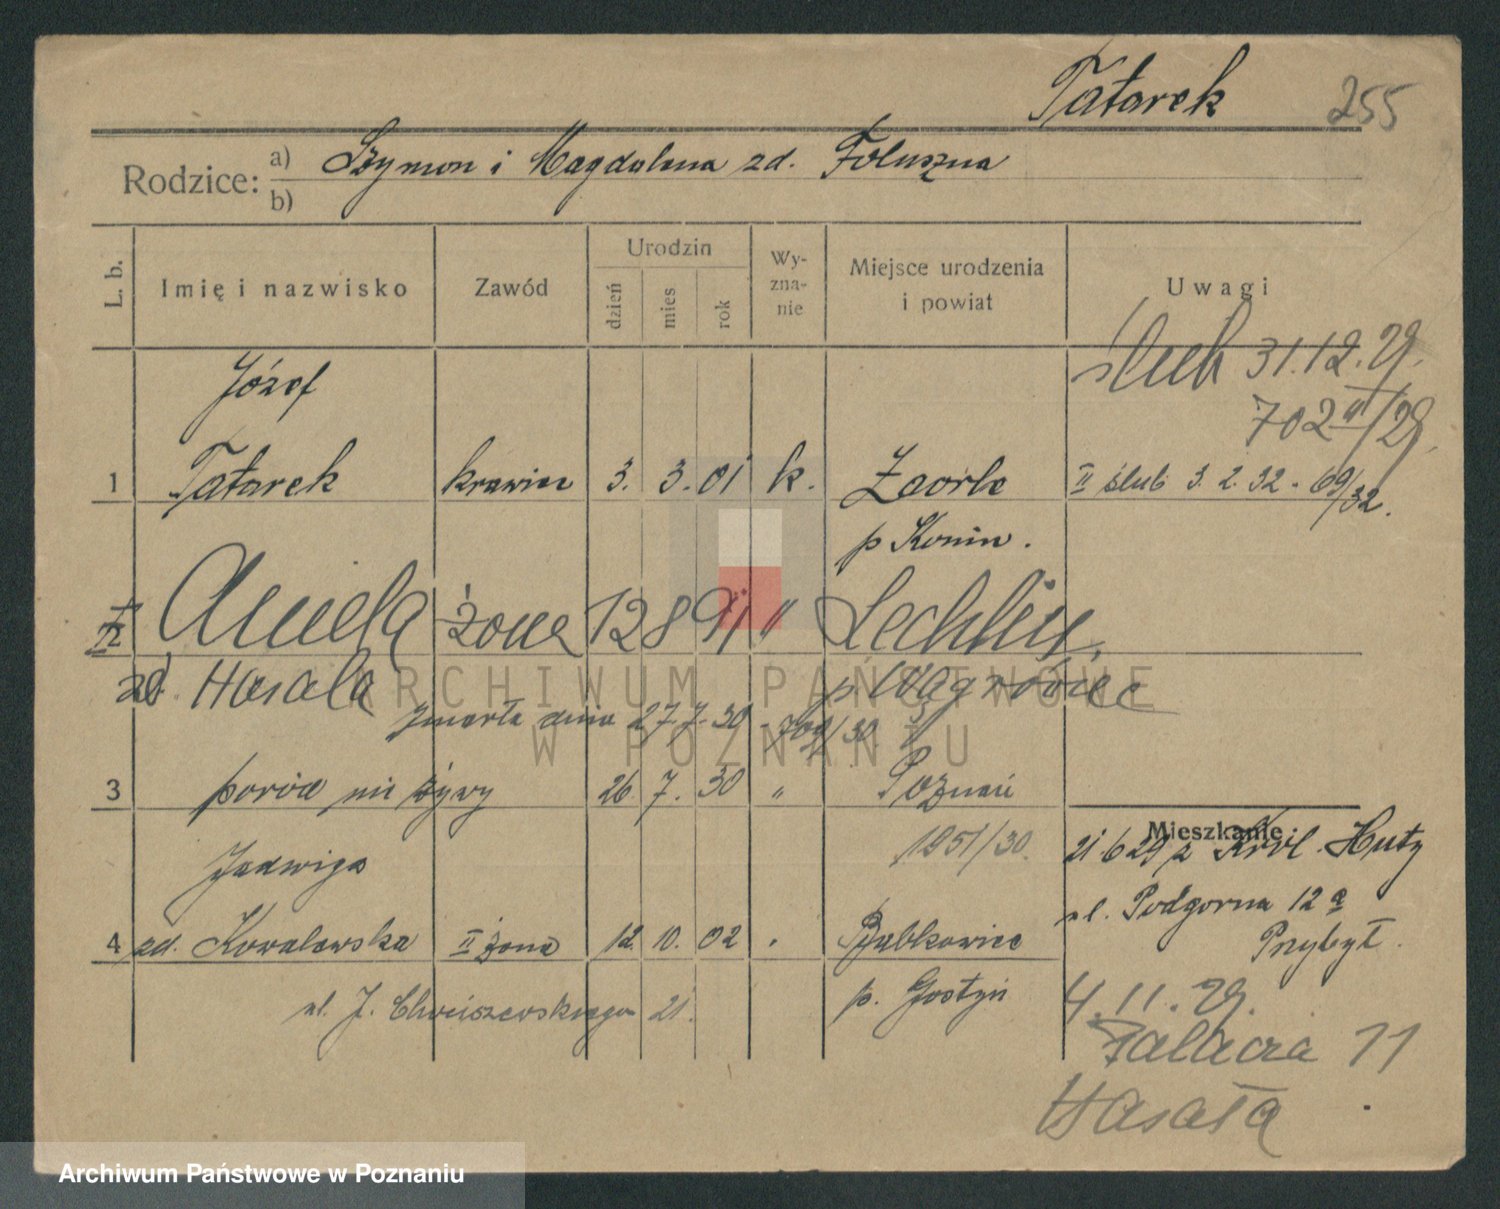 Tatarek 255
Rodzice: a) Szymon i Magdalena zd. Foluszna
b)
L. b. Imię i nazwisko Zawód Urodzin dzień mies rok Wy-zna-nie Miejsce urodzenia i powiat Uwagi
ślub 31.12.29.
702 II/29.
Józef
1 Tatarek krawiec 3. 3. 01 k. Zaorle II ślub 3. 2. 32 - 69/32.
p Konin.
Aniela żona 12 8 91 " Lechlin,
zd. Hasała p Wągrówiec
zmarła dnia 27 7. 30 - 709/30
3 poród nie żywy 26 7. 30 " Poznań
1951/30.
Mieszkanie:
21 6 29 z Król. Huty
Jadwiga
ul. Podgorna 12a
4 zd. Kowalewska II żona 12. 10. 02 " Bąbkowice
Przybył.
ul. J. Chociszewskiego 21. p. Gostyń
4.11.29.
Palacza 11
Hasała
ARCHIWUM PAŃSTWOWE
W POZNANIU
Archiwum Państwowe w Poznaniu